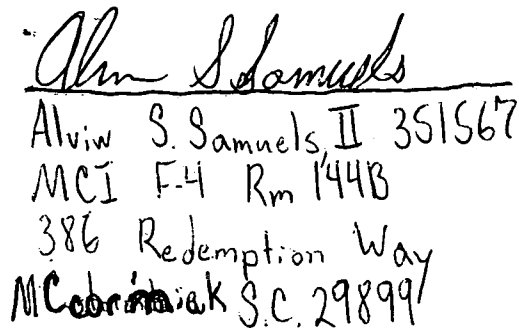 Alvin S Samuels
Alvin S. Samuels, II 351567
MCI F-4 Rm 144B
386 Redemption Way
McCormick S.C. 29899